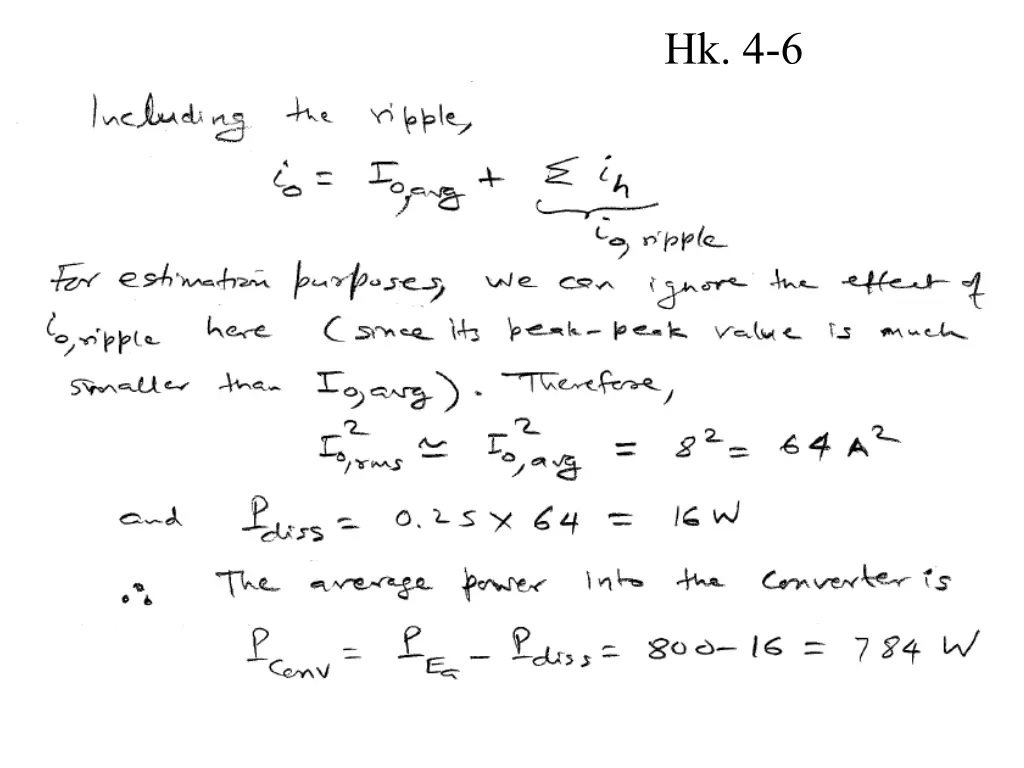 Hk. 4-6
Including the ripple,
i₀ = I₀,avg + Σ iₕ
i₀,ripple
For estimation purposes, we can ignore the effect of
i₀,ripple here (since its peak-peak value is much
smaller than I₀,avg). Therefore,
I²₀,rms ≃ I²₀,avg = 8² = 64 A²
and P_diss = 0.25 × 64 = 16 W
∴ The average power into the converter is
P_Conv = P_Ea - P_diss = 800 - 16 = 784 W